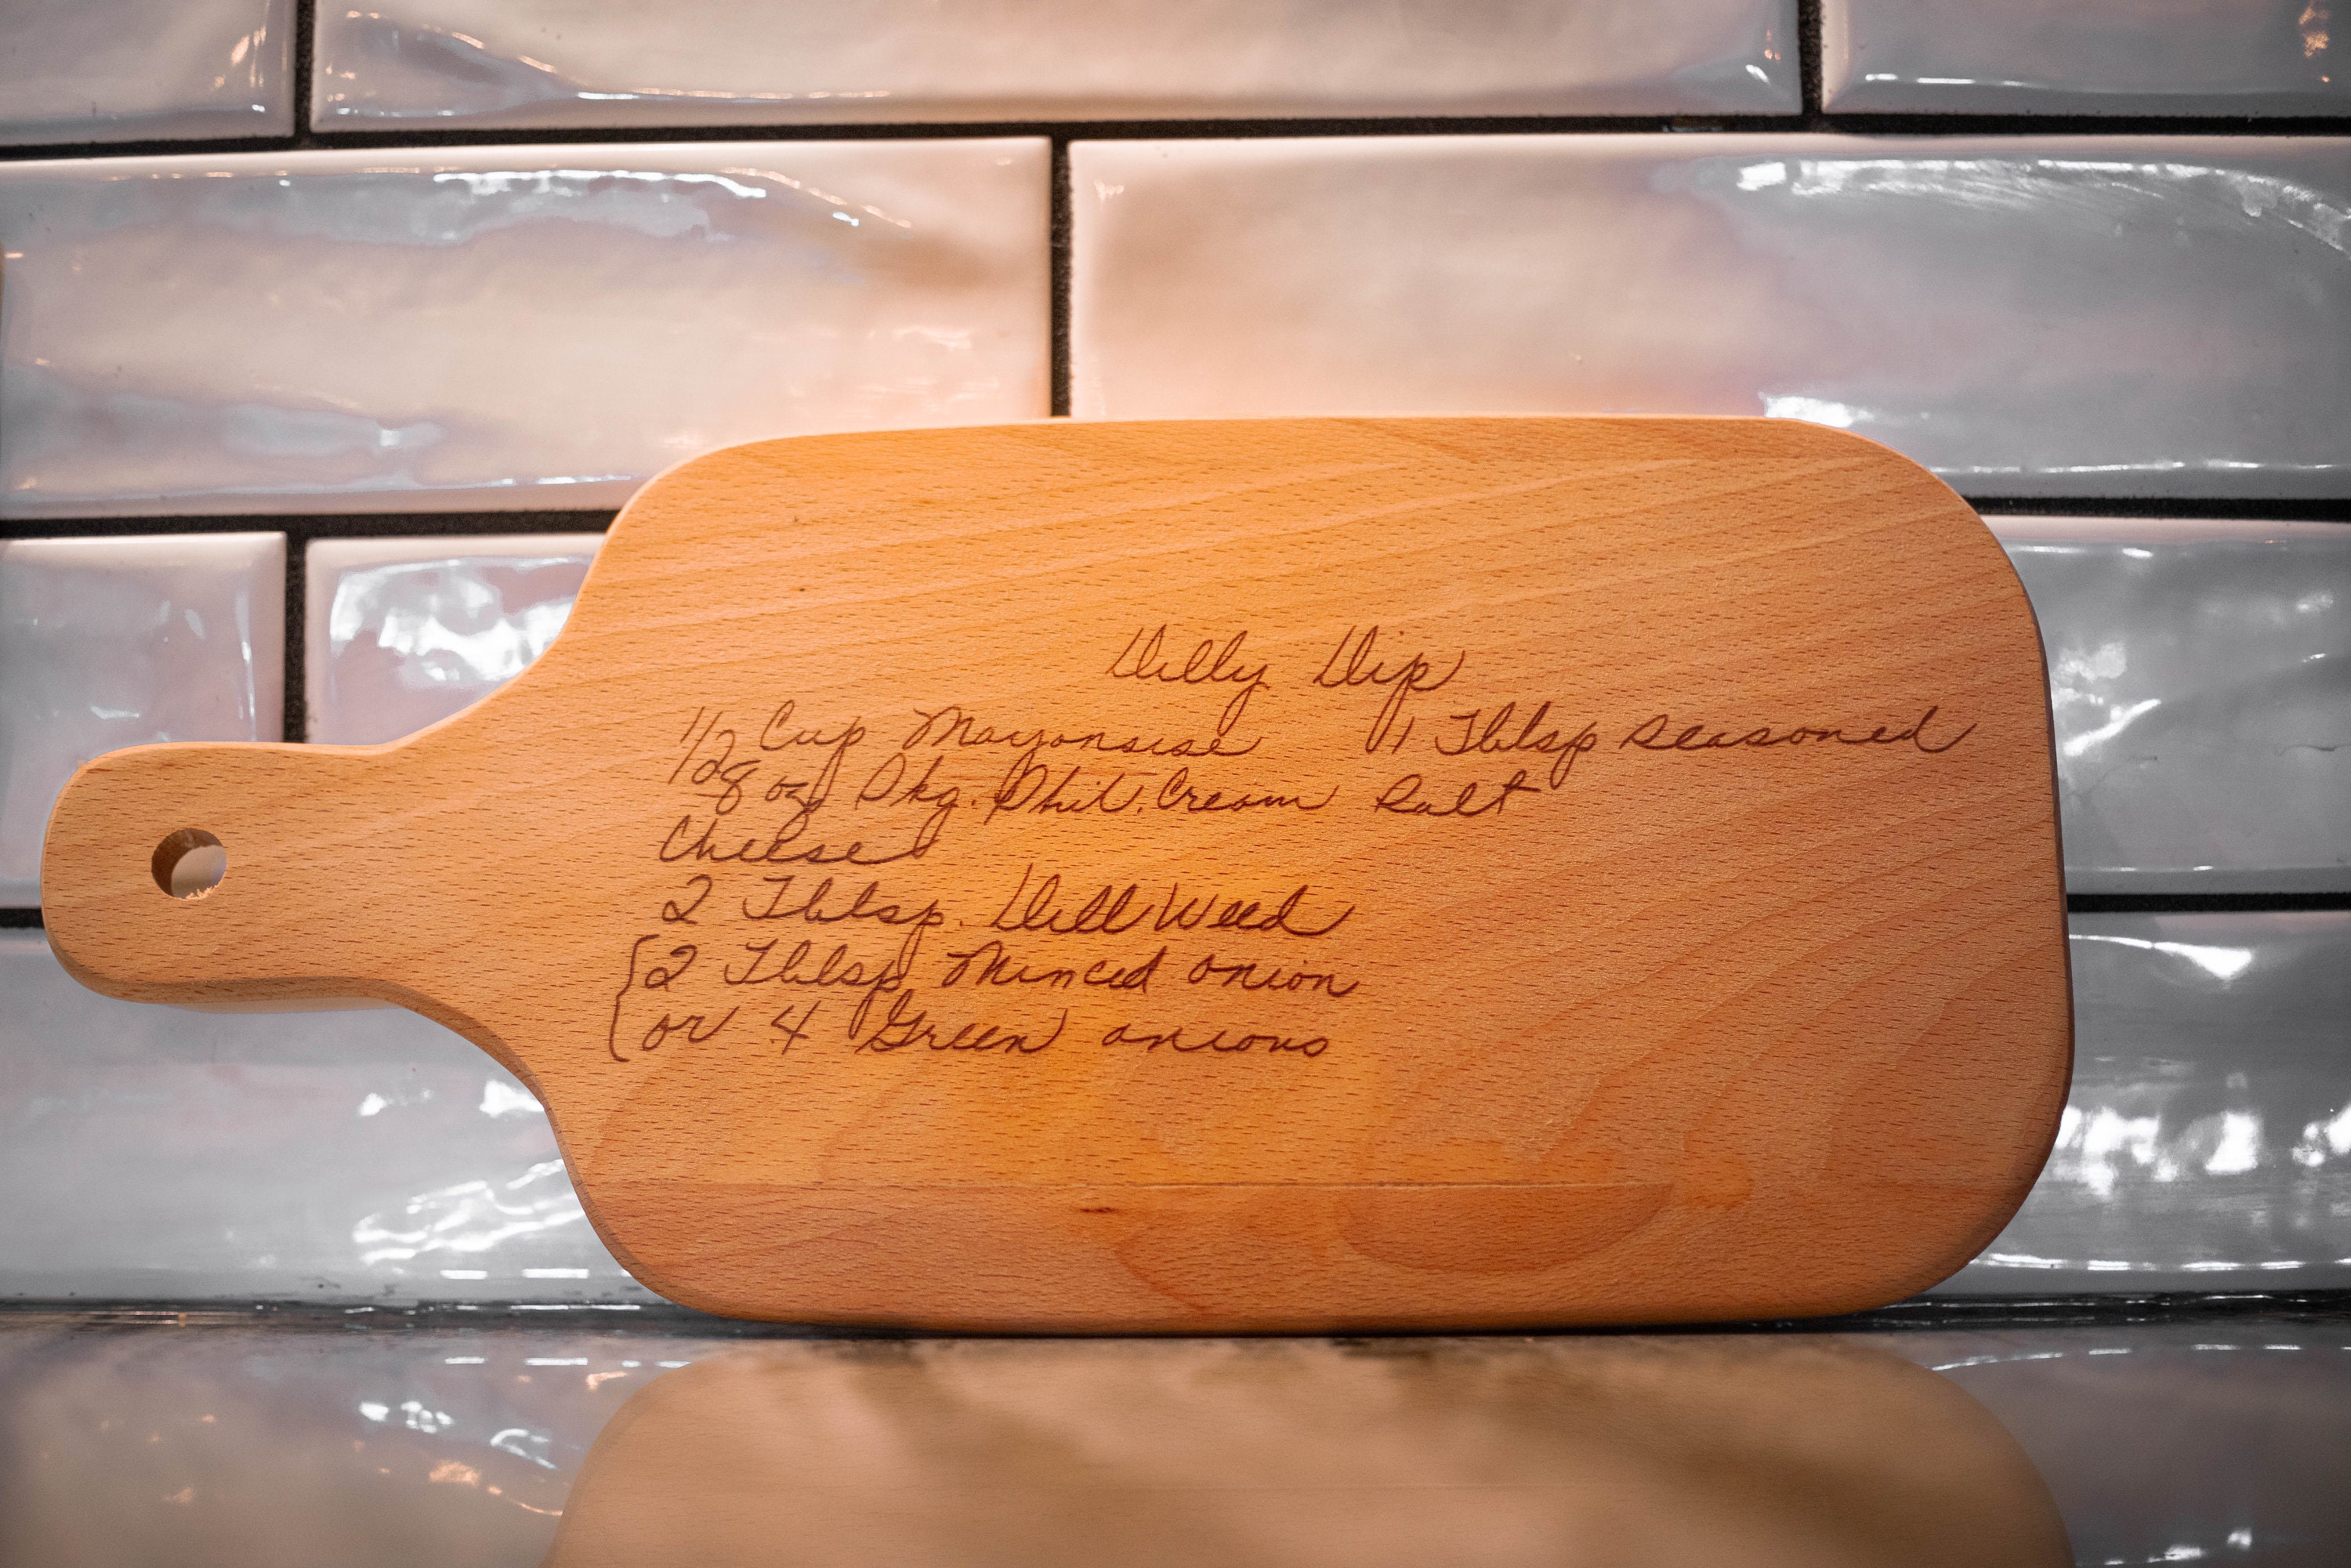 Dilly Dip
1/2 Cup Mayonsise 1 Tblsp seasoned
8 oz Pkg. Phil. Cream Salt
Cheese
2 Tblsp. Dill Weed
{2 Tblsp Minced onion
or 4 Green onions